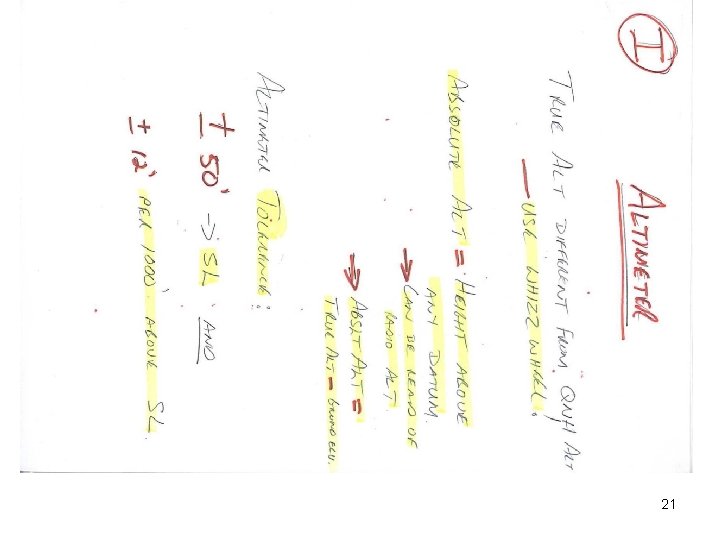 I
ALTIMETER
TRUE ALT DIFFERENT FROM QNH ALT
— USE WHIZZ WHEEL.
ABSOLUTE ALT = HEIGHT ABOVE
ANY DATUM.
→ CAN BE READ OF
RADIO ALT.
→ ABSLT ALT =
TRUE ALT – GRUND ELV.
ALTIMETER TOLERANCE:
± 50' → SL AND
± 12' PER 1000' ABOVE SL.
21